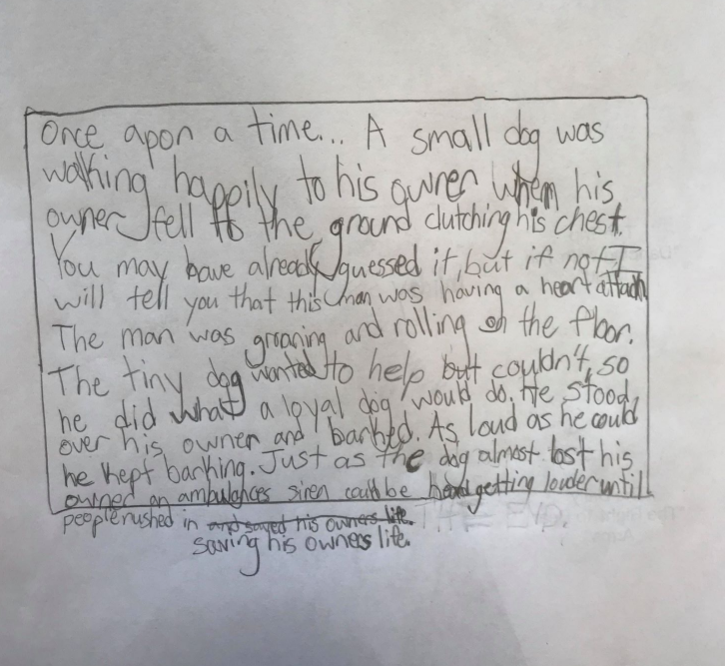 Once apon a time... A small dog was
walking happily to his owner when his
owner fell to the ground clutching his chest.
You may have already guessed it, but if not I
will tell you that this man was having a heart attack
The man was groaning and rolling on the floor.
The tiny dog wanted to help but couldn't, so
he did what a loyal dog would do. He stood
over his owner and barked. As loud as he could
he kept barking. Just as the dog almost lost his
owned an ambulances siren could be heard getting louder until
people rushed in and saved his owners life. THE END.
saving his owners life.